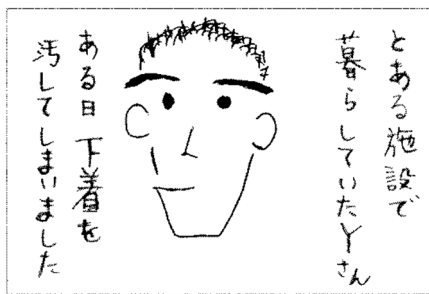 とある施設で
暮らしていたYさん
ある日下着を
汚してしまいました